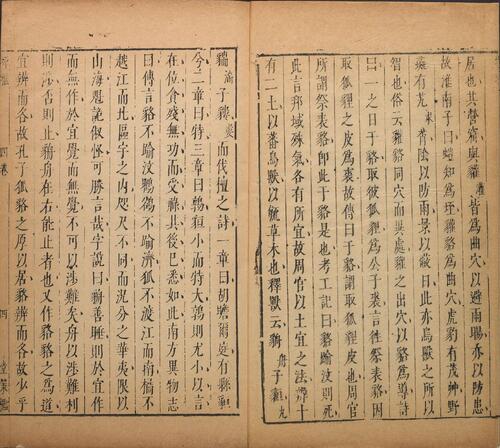 居也其營窟與貛皆爲曲穴以避雨暘亦以防患
故淮南子曰蟂知爲坯貛貉爲曲穴虎豹有茂艸野
彘有艽莦陰以防雨景以蔽日此亦鳥獸之所以
智也俗云貛貉同穴而異處貛之出穴以貉爲導詩
曰一之日于貉取彼狐貍爲公子裘言徃祭表貉因
取狐貍之皮爲裘故傳曰于貉謂取狐貍皮也周官
所謂祭表貉卽此于貉是也考工記曰貉踰汶則死
此言邦域殊氣各有所宜故周官以土宜之法辨十
有二土以蕃鳥獸以毓草木也釋獸云貈子貆
貒而伐檀之詩一章曰胡瞻爾庭有縣貆
兮二章曰特三章曰鶉貆小而特大鶉則尤小以言
在位貪殘無功而受祿其後巳悉如此南方異物志
曰傳言貉不踰汶鸜鵒不踰濟狐不渡江而南橘不
越江而北區宇之内咫尺不同而況分之華夷限以
山海鬼詭俶怪可勝言哉字說曰貈善睡則於宜作
而無作於宜覺而無覺不可以涉難矣舟以涉難利
則涉否則止貈舟在右能止者也又作貉貉之爲道
宜辨而各故孔子狐貉之厚以居貉辨而各故少乎
四卷
四